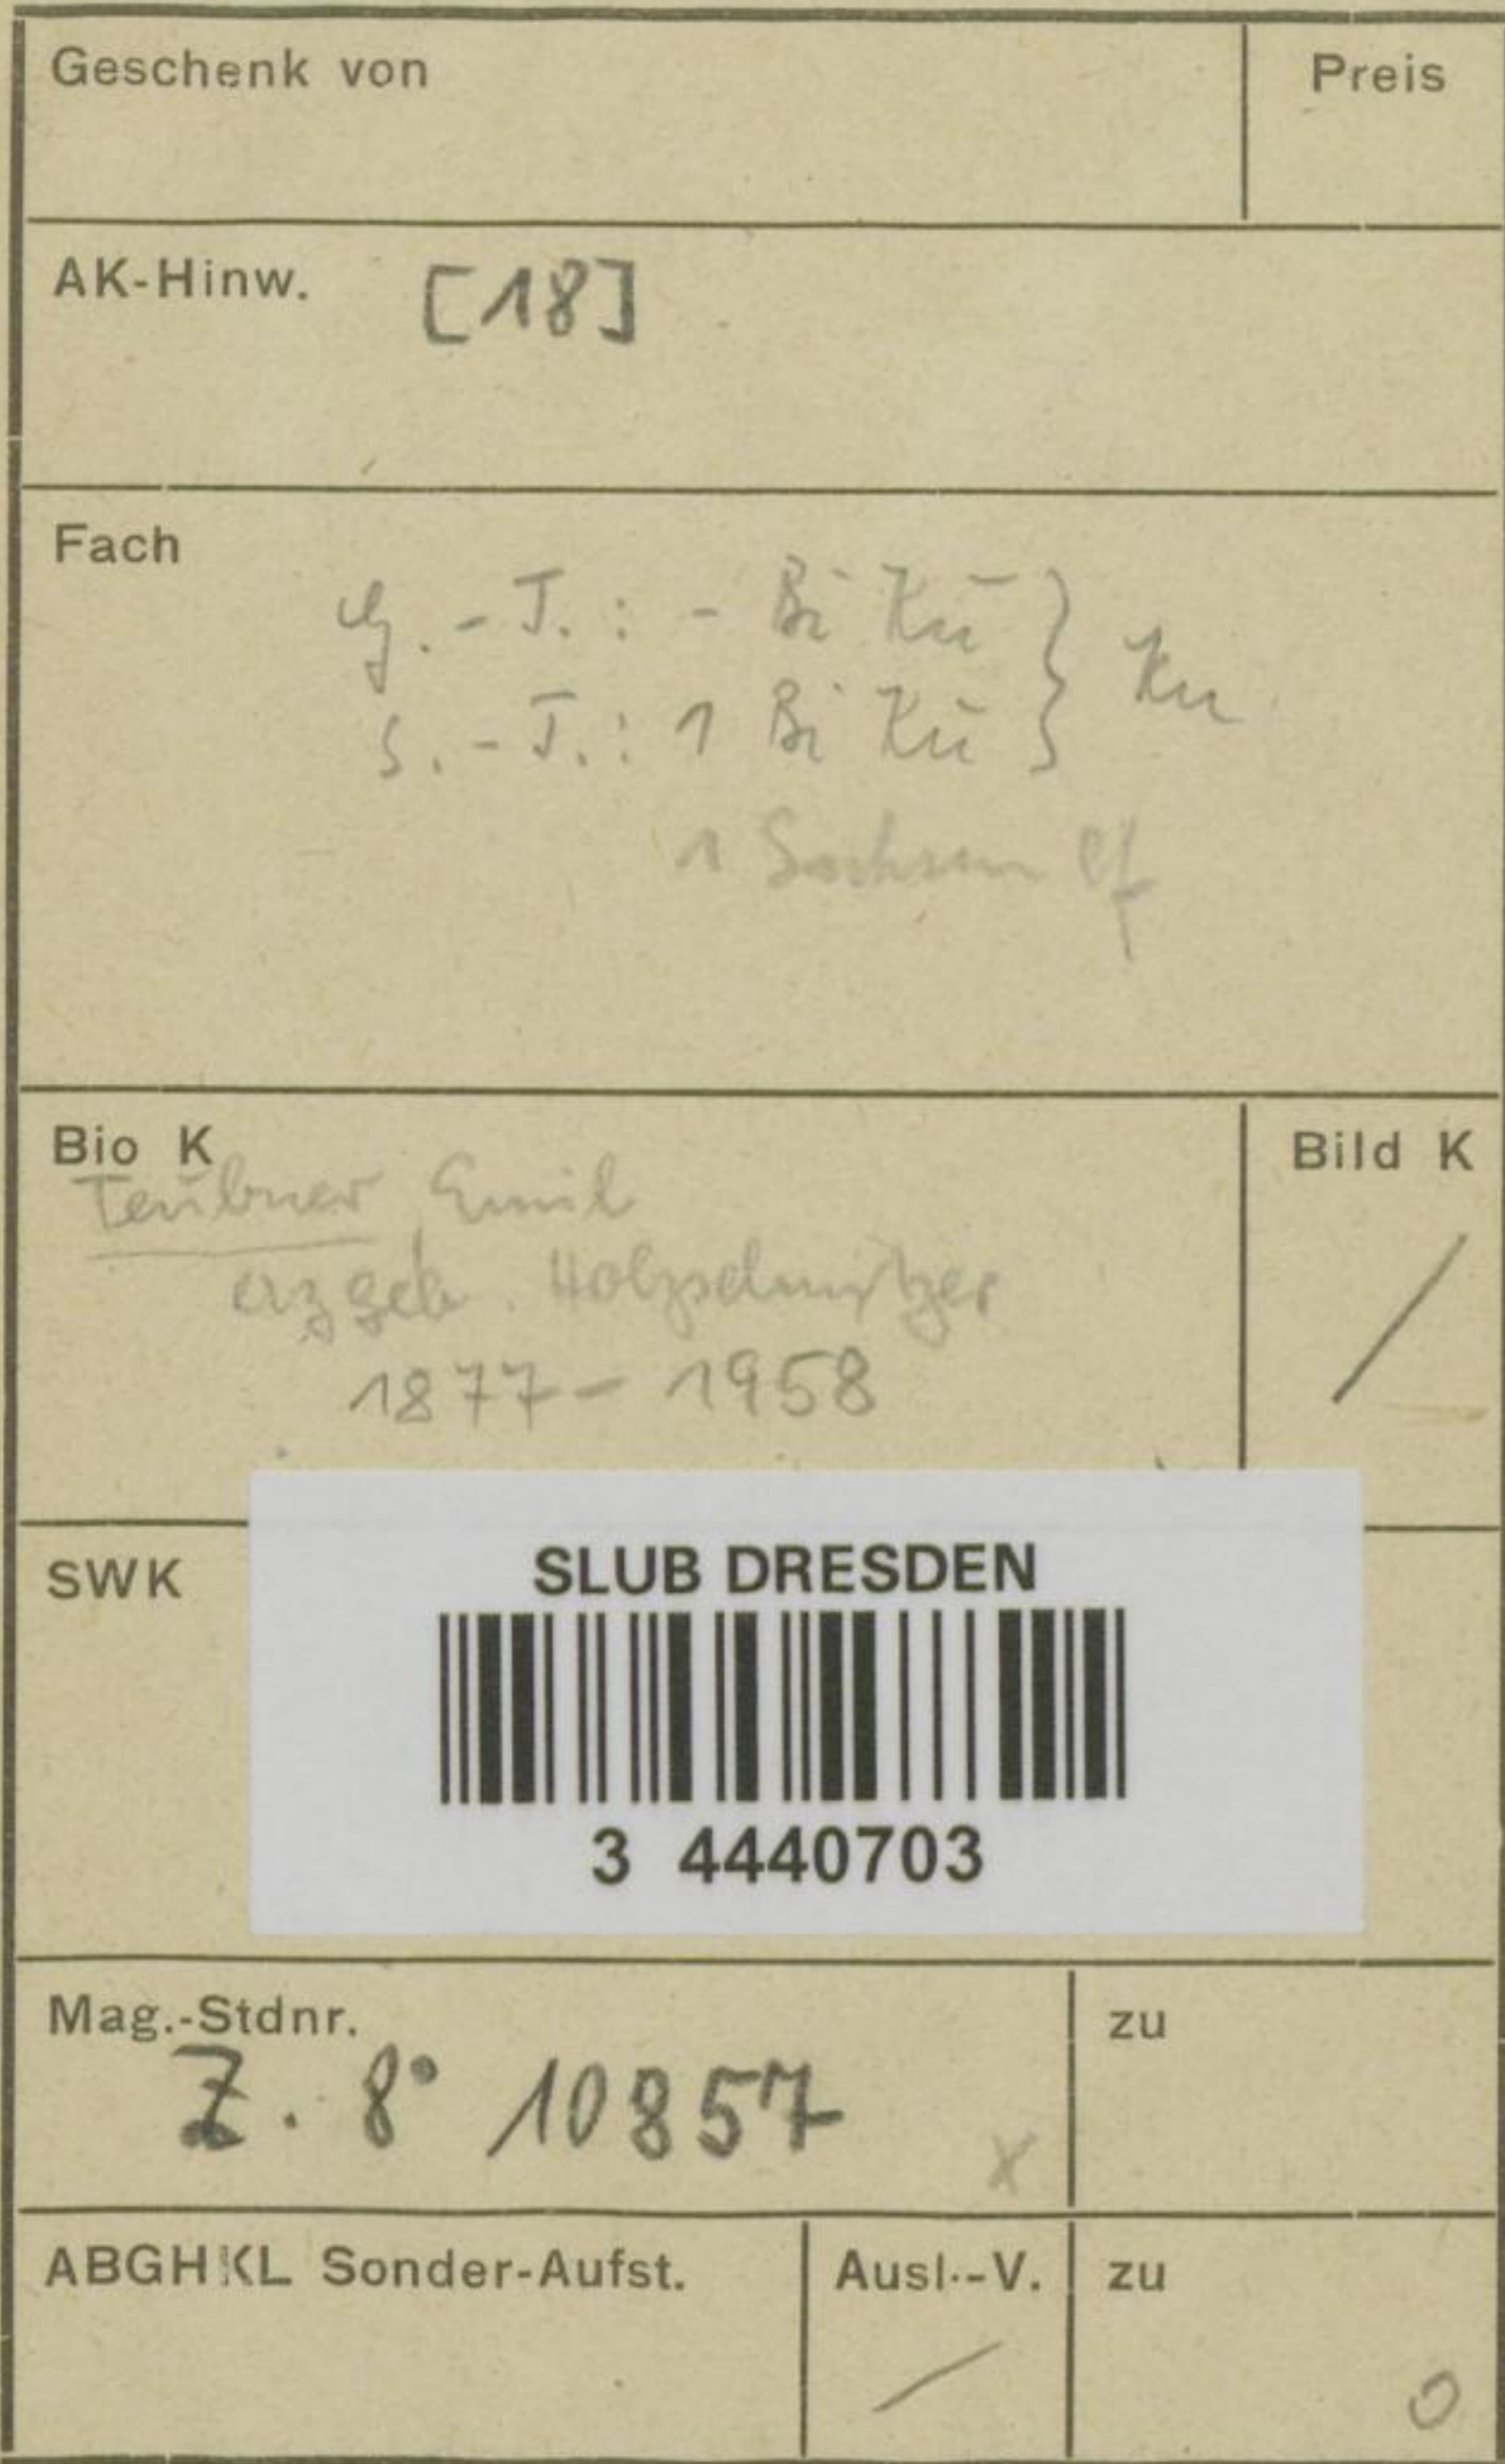 Geschenk von Preis
AK-Hinw. [18]
Fach
G.-T.: - Bi Kü } Ku
S.-T.: 1 Bi Kü }
1 Sachsen
Bio K Bild K
Teubner Emil
erzgeb. Holzschnitzer
1877-1958
SWK
SLUB DRESDEN
3 4440703
Mag.-Stdnr. zu
Z. 8° 10857 x
ABGHKL Sonder-Aufst. Ausl.-V. zu
0